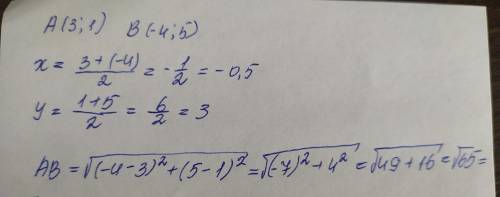 A(3;1) B(-4;5)
x = (3+(-4))/2 = -1/2 = -0,5
y = (1+5)/2 = 6/2 = 3
AB = √((-4-3)²+(5-1)²) = √((-7)²+4²) = √(49+16) = √65 =